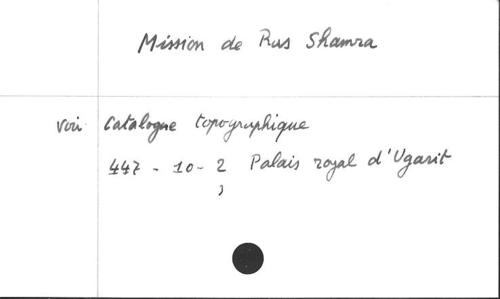 Mission de Ras Shamra
voir Catalogue topographique
447 - 10 - 2 Palais royal d'Ugarit